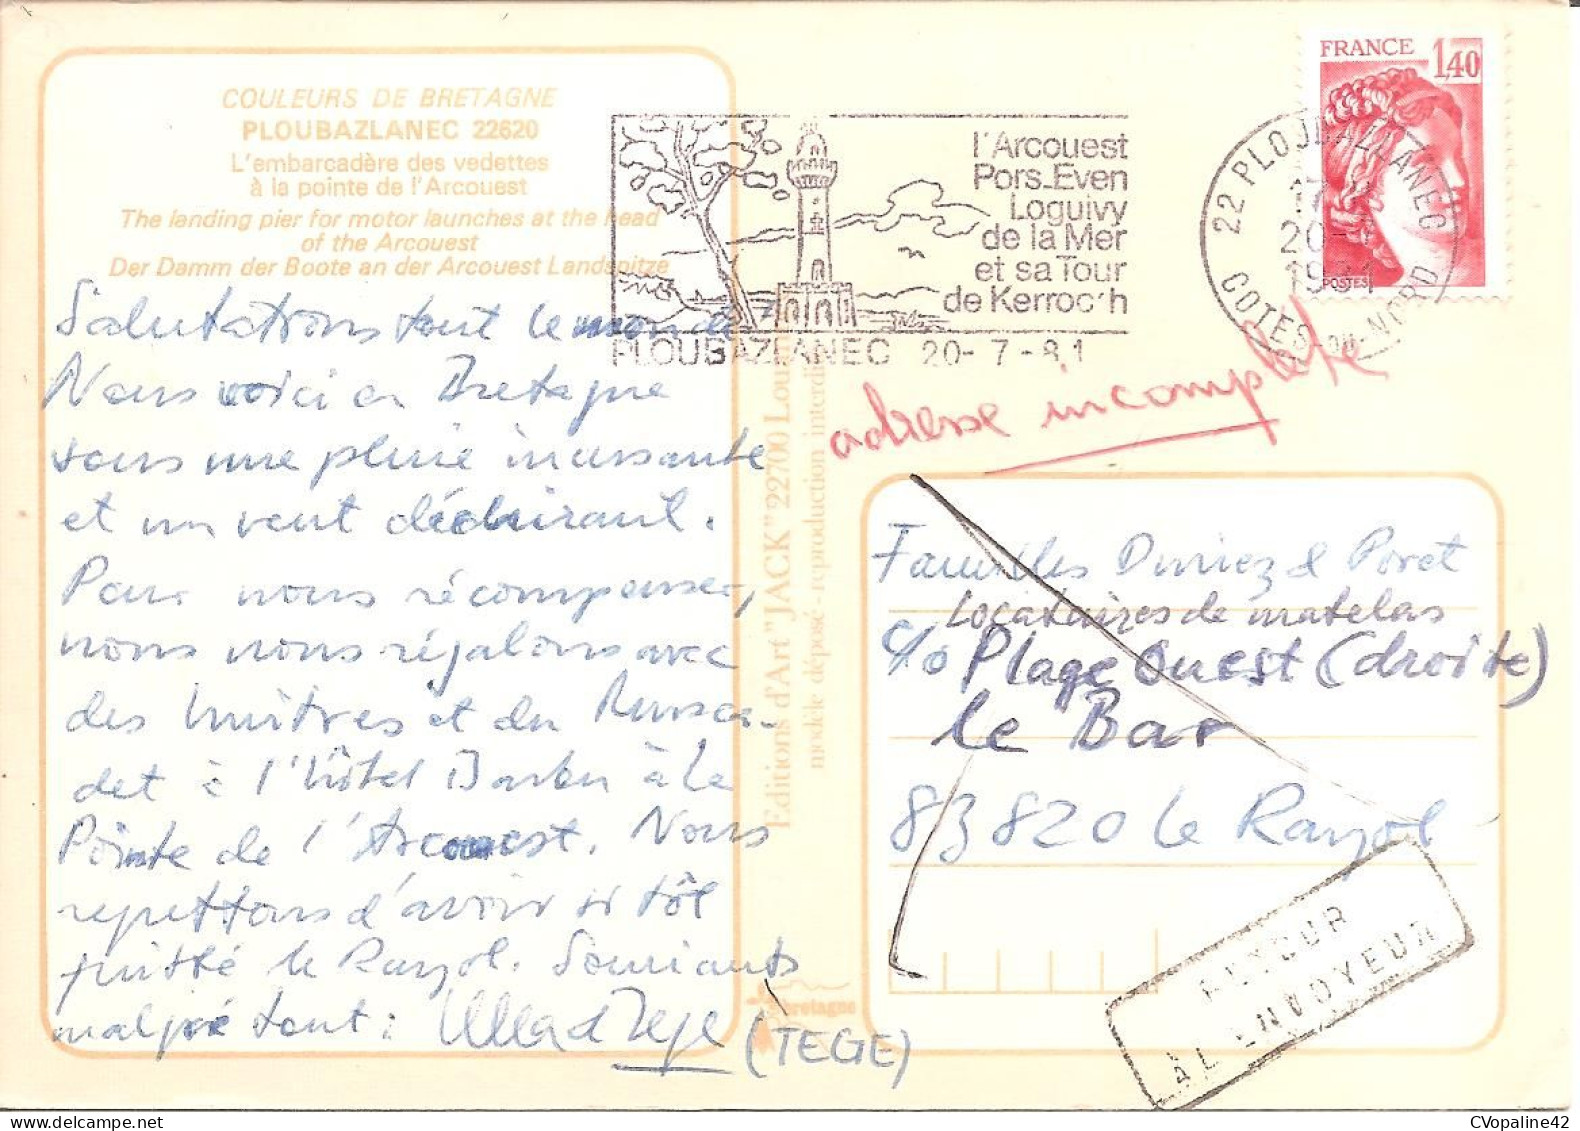 COULEURS DE BRETAGNE
PLOUBAZLANEC 22620
L'embarcadère des vedettes
à la pointe de l'Arcouest
The landing pier for motor launches at the head
of the Arcouest
Der Damm der Boote an der Arcouest Landspitze
Salutations tout le monde
Nous voici en Bretagne
sous une pluie incessante
et un vent déchirant.
Pour nous récompenser,
nous nous régalons avec
des huîtres et du Musca-
det à l'hôtel Barbu à la
Pointe de l'Arcouest. Nous
regrettons d'avoir si tôt
quitté le Rayol. Souriants
malgré tout :
(TEGE)
bretagne
Editions d'Art "JACK" 22700 Lou
modèle déposé - reproduction interdi
l'Arcouest
Pors-Even
Loguivy
de la Mer
et sa Tour
de Kerroc'h
PLOUBAZLANEC 20-7-81
22 PLOUBAZLANEC
17
20-7
1981
COTES-DU-NORD
FRANCE
1,40
POSTES
adresse incomplète
Familles Duriez & Poret
Locataires de matelas
c/o Plage Ouest (droite)
le Bar
83820 le Rayol
RETOUR
A L'ENVOYEUR
delcampe.net
CVopaline42